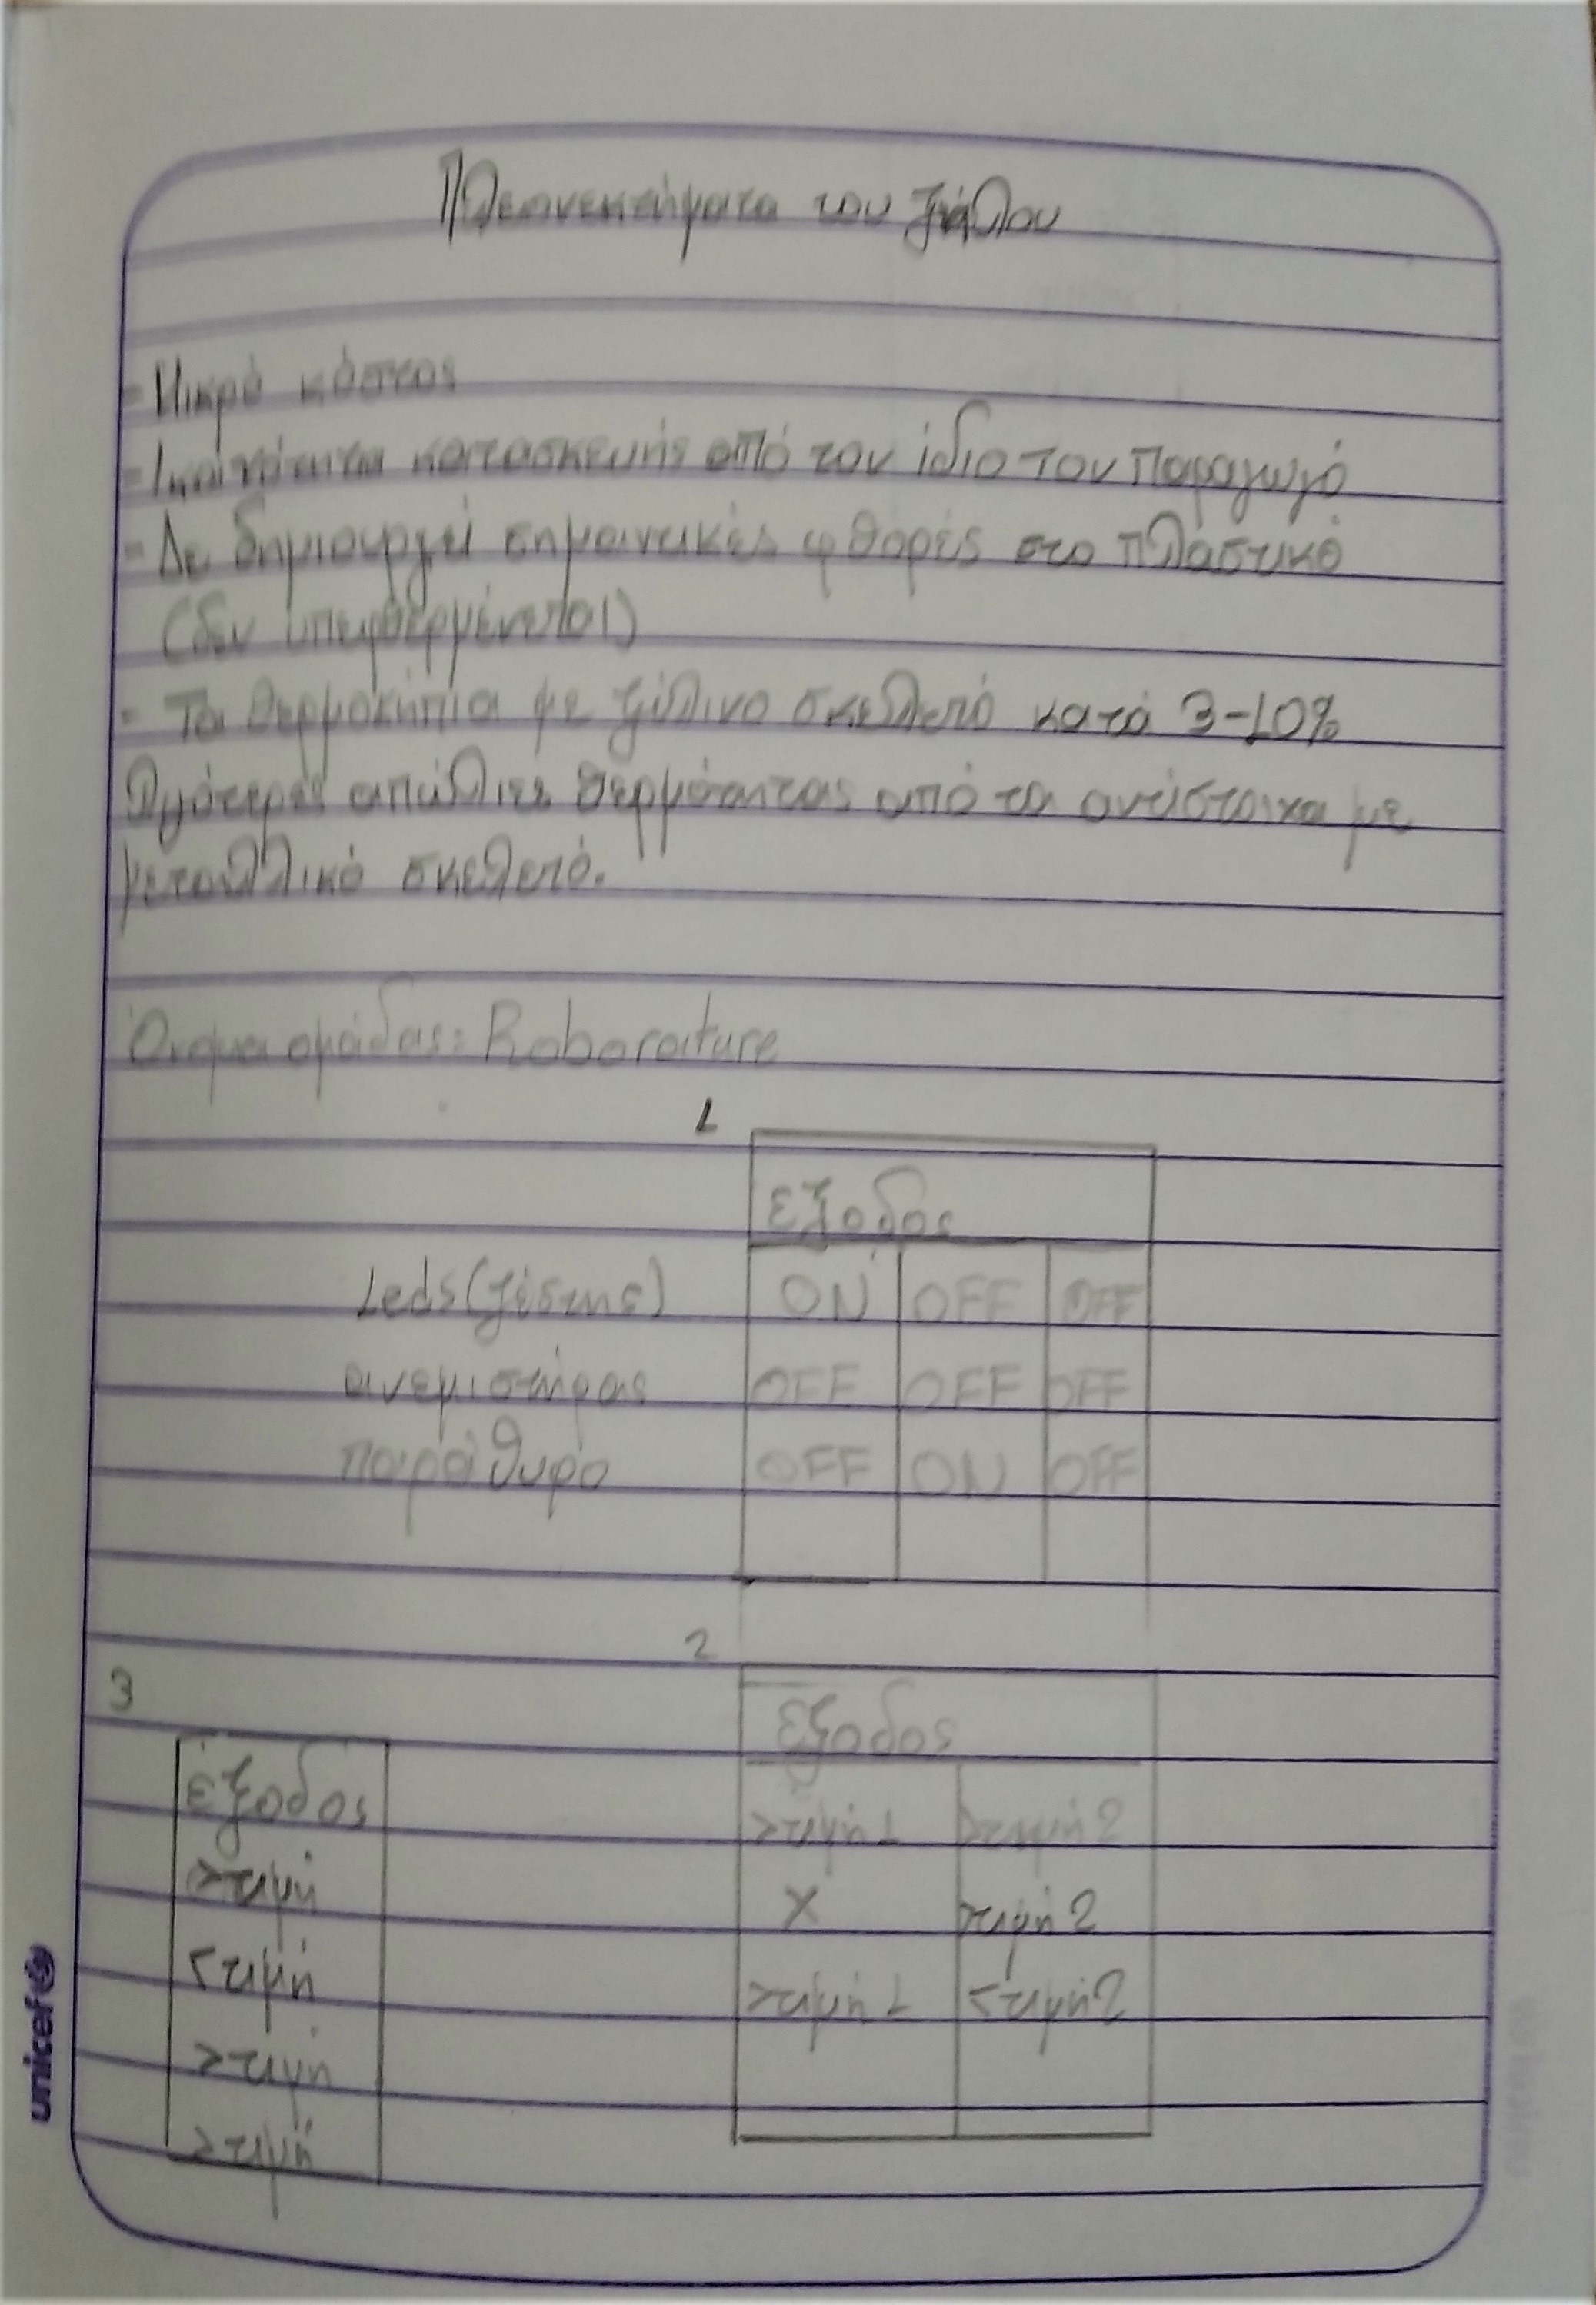 Πλεονεκτήματα του ξύλου
- Μικρό κόστος
- Ικανότητα κατασκευής από τον ίδιο τον παραγωγό
- Δε δημιουργεί σημαντικές φθορές στο πλαστικό
(δεν υπερθερμένεται)
- Τα θερμοκήπια με ξύλινο σκελετό κατά 3-10%
λιγότερες απώλειες θερμότητας από τα αντίστοιχα με
μεταλλικό σκελετό.
Όνομα ομάδας: Roborature
1
έξοδος
Leds (ζέστης) ON OFF OFF
ανεμιστήρας OFF OFF OFF
παράθυρο OFF ON OFF
2
έξοδος
>τιμή 1 >τιμή 2
X >τιμή 2
>τιμή 1 <τιμή 2
3
έξοδος
>τιμή
<τιμή
>τιμή
>τιμή
unicef